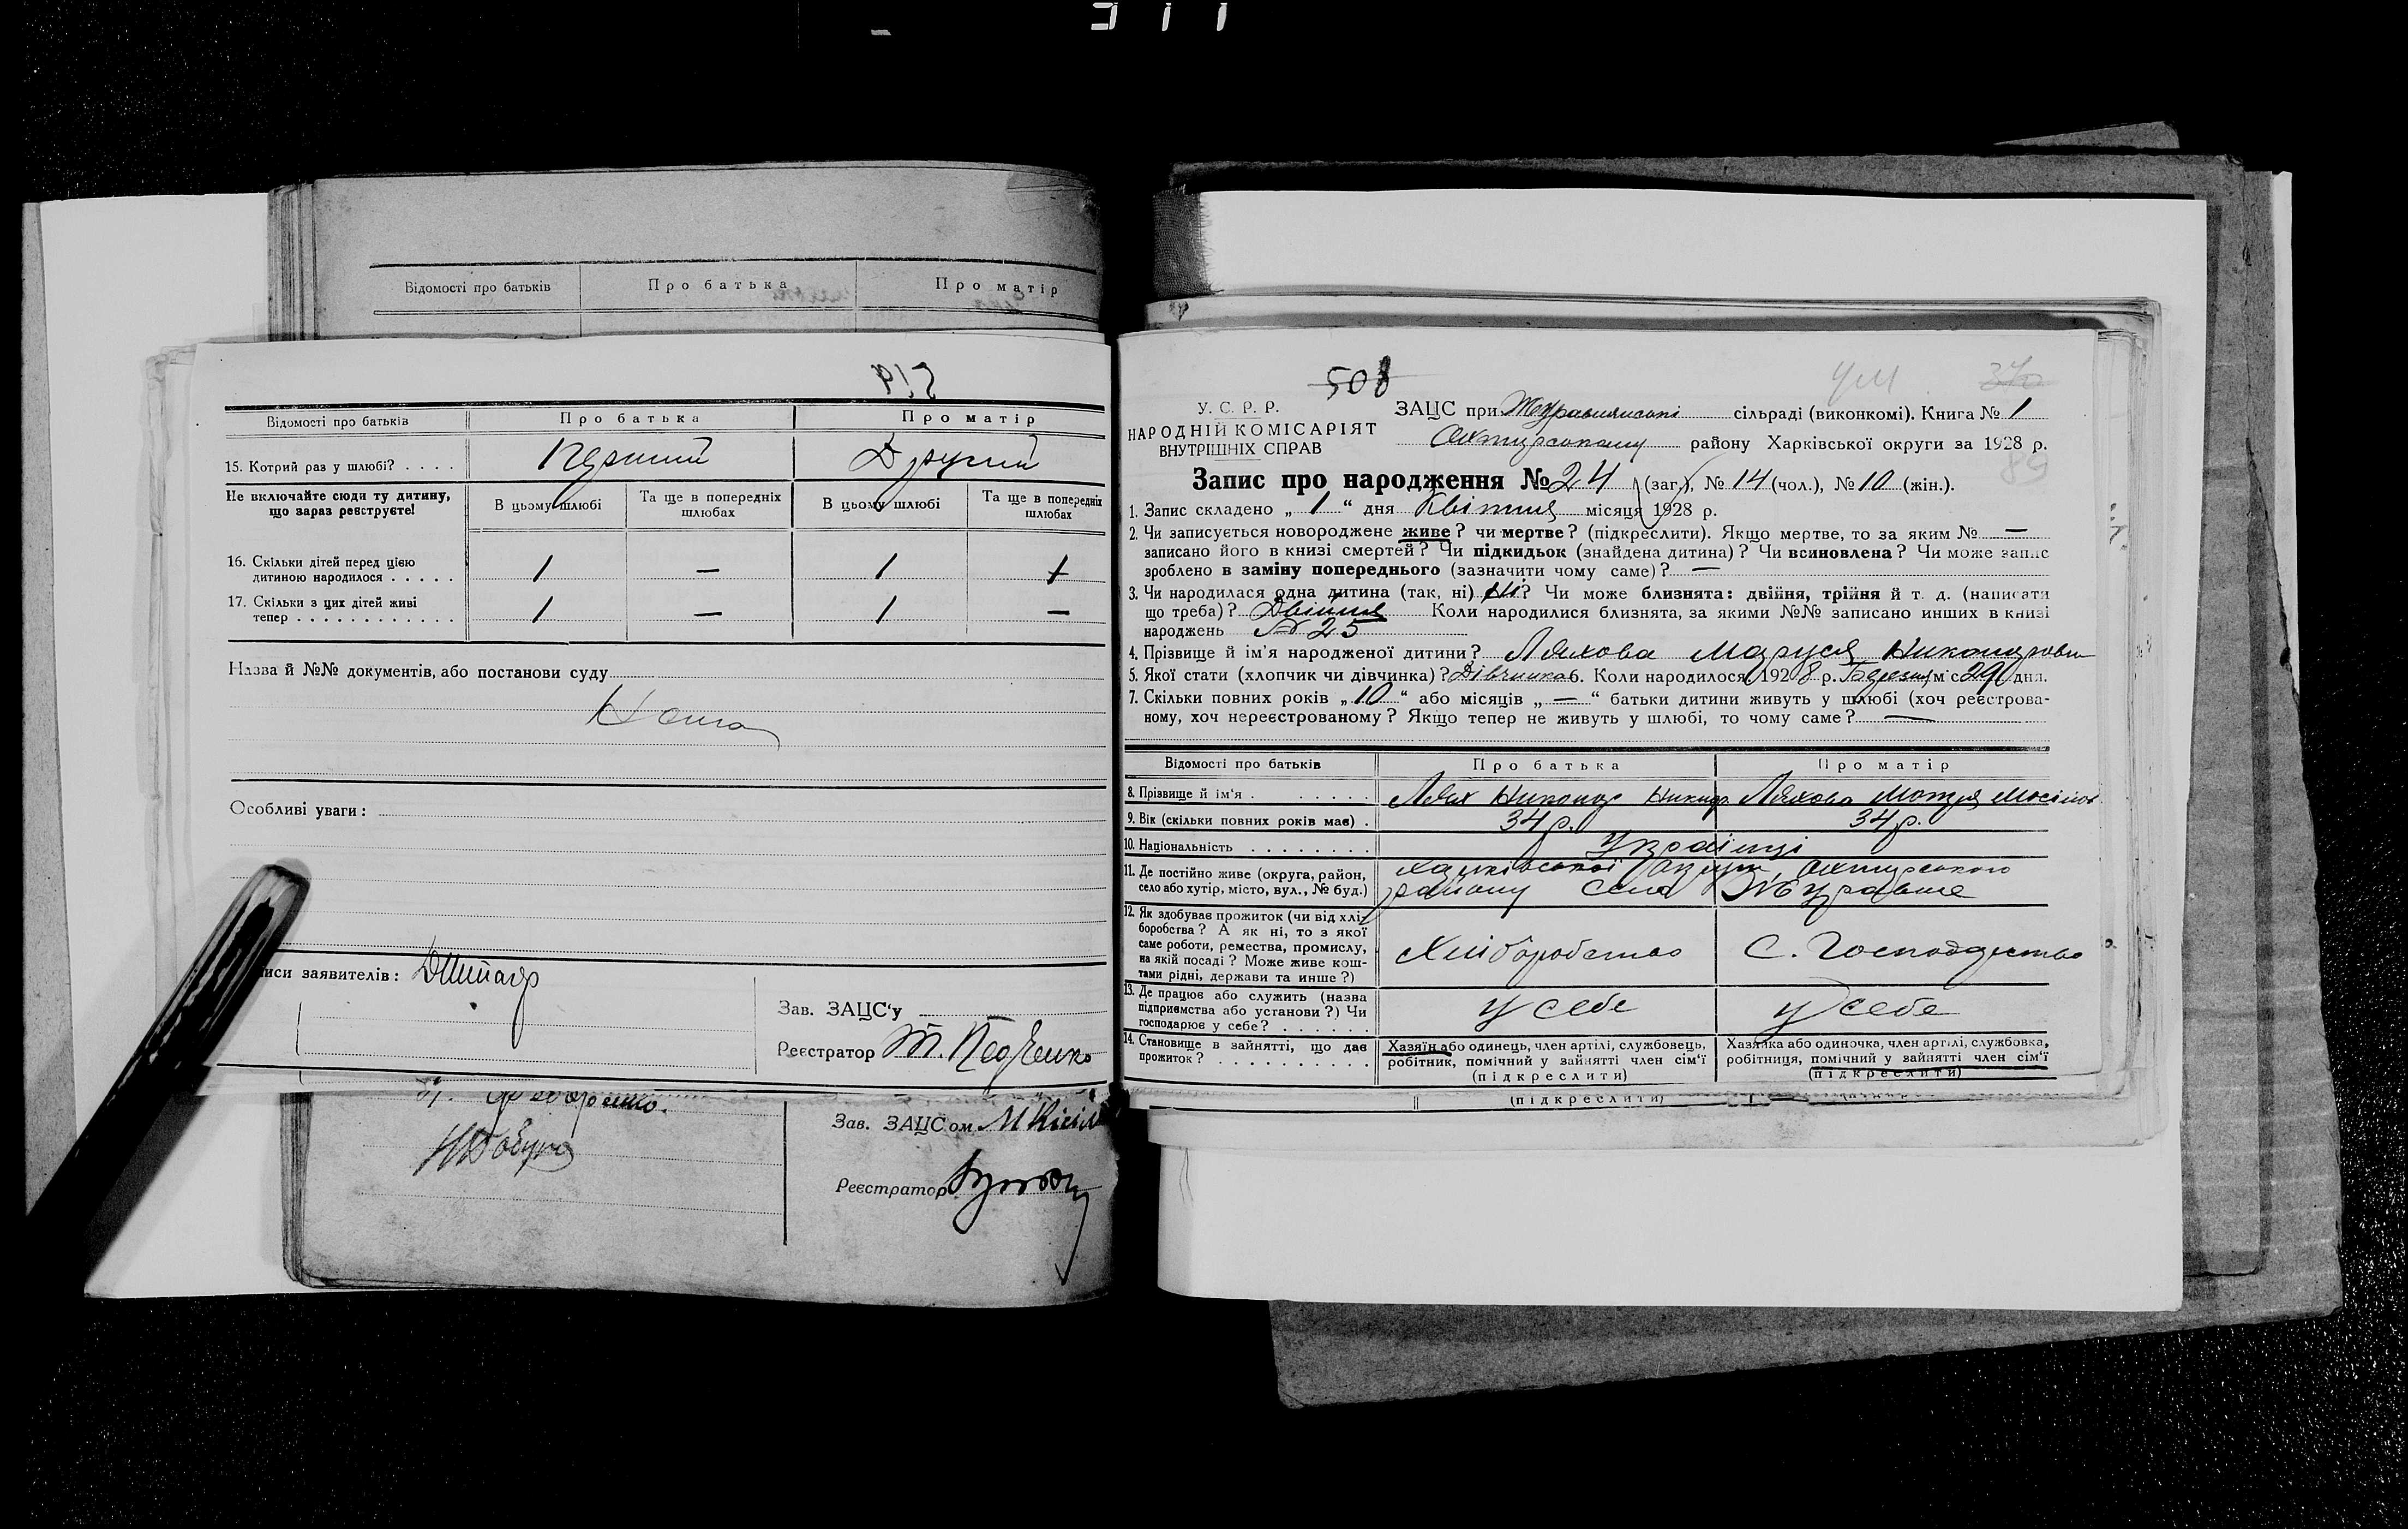 Відомості про батьків Про батька Про матір
519
Відомості про батьків Про батька Про матір
15. Котрий раз у шлюбі? . . . . Перший Другий
Не включайте сюди ту дитину, що зараз реєструєте!
В цьому шлюбі Та ще в попередніх шлюбах В цьому шлюбі Та ще в попередніх шлюбах
16. Скільки дітей перед цією
дитиною народилося . . . . . 1 — 1 1
17. Скільки з цих дітей живі
тепер . . . . . . . . . . . . 1 — 1 —
Назва й №№ документів, або постанови суду
Нема
Особливі уваги:
иси заявителів:
Зав. ЗАЦС'у
Реєстратор
Зав. ЗАЦСом
Реєстратор
508
У. С. Р. Р.
НАРОДНІЙ КОМІСАРІЯТ
ВНУТРІШНІХ СПРАВ
ЗАЦС при Журавлянській сільраді (виконкомі). Книга № 1
Охтирському району Харківської округи за 1928 р.
Запис про народження № 24 (заг.), № 14 (чол.), № 10 (жін.).
1. Запис складено „ 1 “ дня Квітня місяця 1928 р.
2. Чи записується новороджене живе? чи мертве? (підкреслити). Якщо мертве, то за яким № —
записано його в книзі смертей? Чи підкидьок (знайдена дитина)? Чи всиновлена? Чи може запис
зроблено в заміну попереднього (зазначити чому саме)? —
3. Чи народилася одна дитина (так, ні) Ні? Чи може близнята: двійня, трійня й т. д. (написати
що треба)? Двійня Коли народилися близнята, за якими №№ записано инших в книзі
народжень № 25
4. Прізвище й ім'я народженої дитини? Ляхова Маруся
5. Якої стати (хлопчик чи дівчинка)? Дівчинка 6. Коли народилося 1928 р. Березня міс 29 дня.
7. Скільки повних років „ 10 “ або місяців „ — “ батьки дитини живуть у шлюбі (хоч реєстрова-
ному, хоч нереєстрованому? Якщо тепер не живуть у шлюбі, то чому саме? —
Відомості про батьків Про батька Про матір
8. Прізвище й ім'я . Лях Никонор Ляхова Мотря
9. Вік (скільки повних років має) . 34 р. 34 р.
10. Національність . . . . . . . . Українці
11. Де постійно живе (округа, район,
село або хутір, місто, вул., № буд.)
Харківської округи, Охтирського
району села Журавне
12. Як здобуває прожиток (чи від хлі-
боробства? А як ні, то з якої
саме роботи, ремества, промислу,
на якій посаді? Може живе кош-
тами рідні, держави та инше?)
Хліборобство С. Господарство
13. Де працює або служить (назва
підприємства або установи?) Чи
господарює у себе? . . . . . .
у себе у себе
14. Становище в зайнятті, що дає
прожиток? . . . . . . . . . .
Хазяїн або одинець, член артілі, службовець,
робітник, помічний у зайнятті член сім'ї
(підкреслити)
Хазяйка або одиночка, член артілі, службовка,
робітниця, помічний у зайнятті член сім'ї
(підкреслити)
(підкреслити)